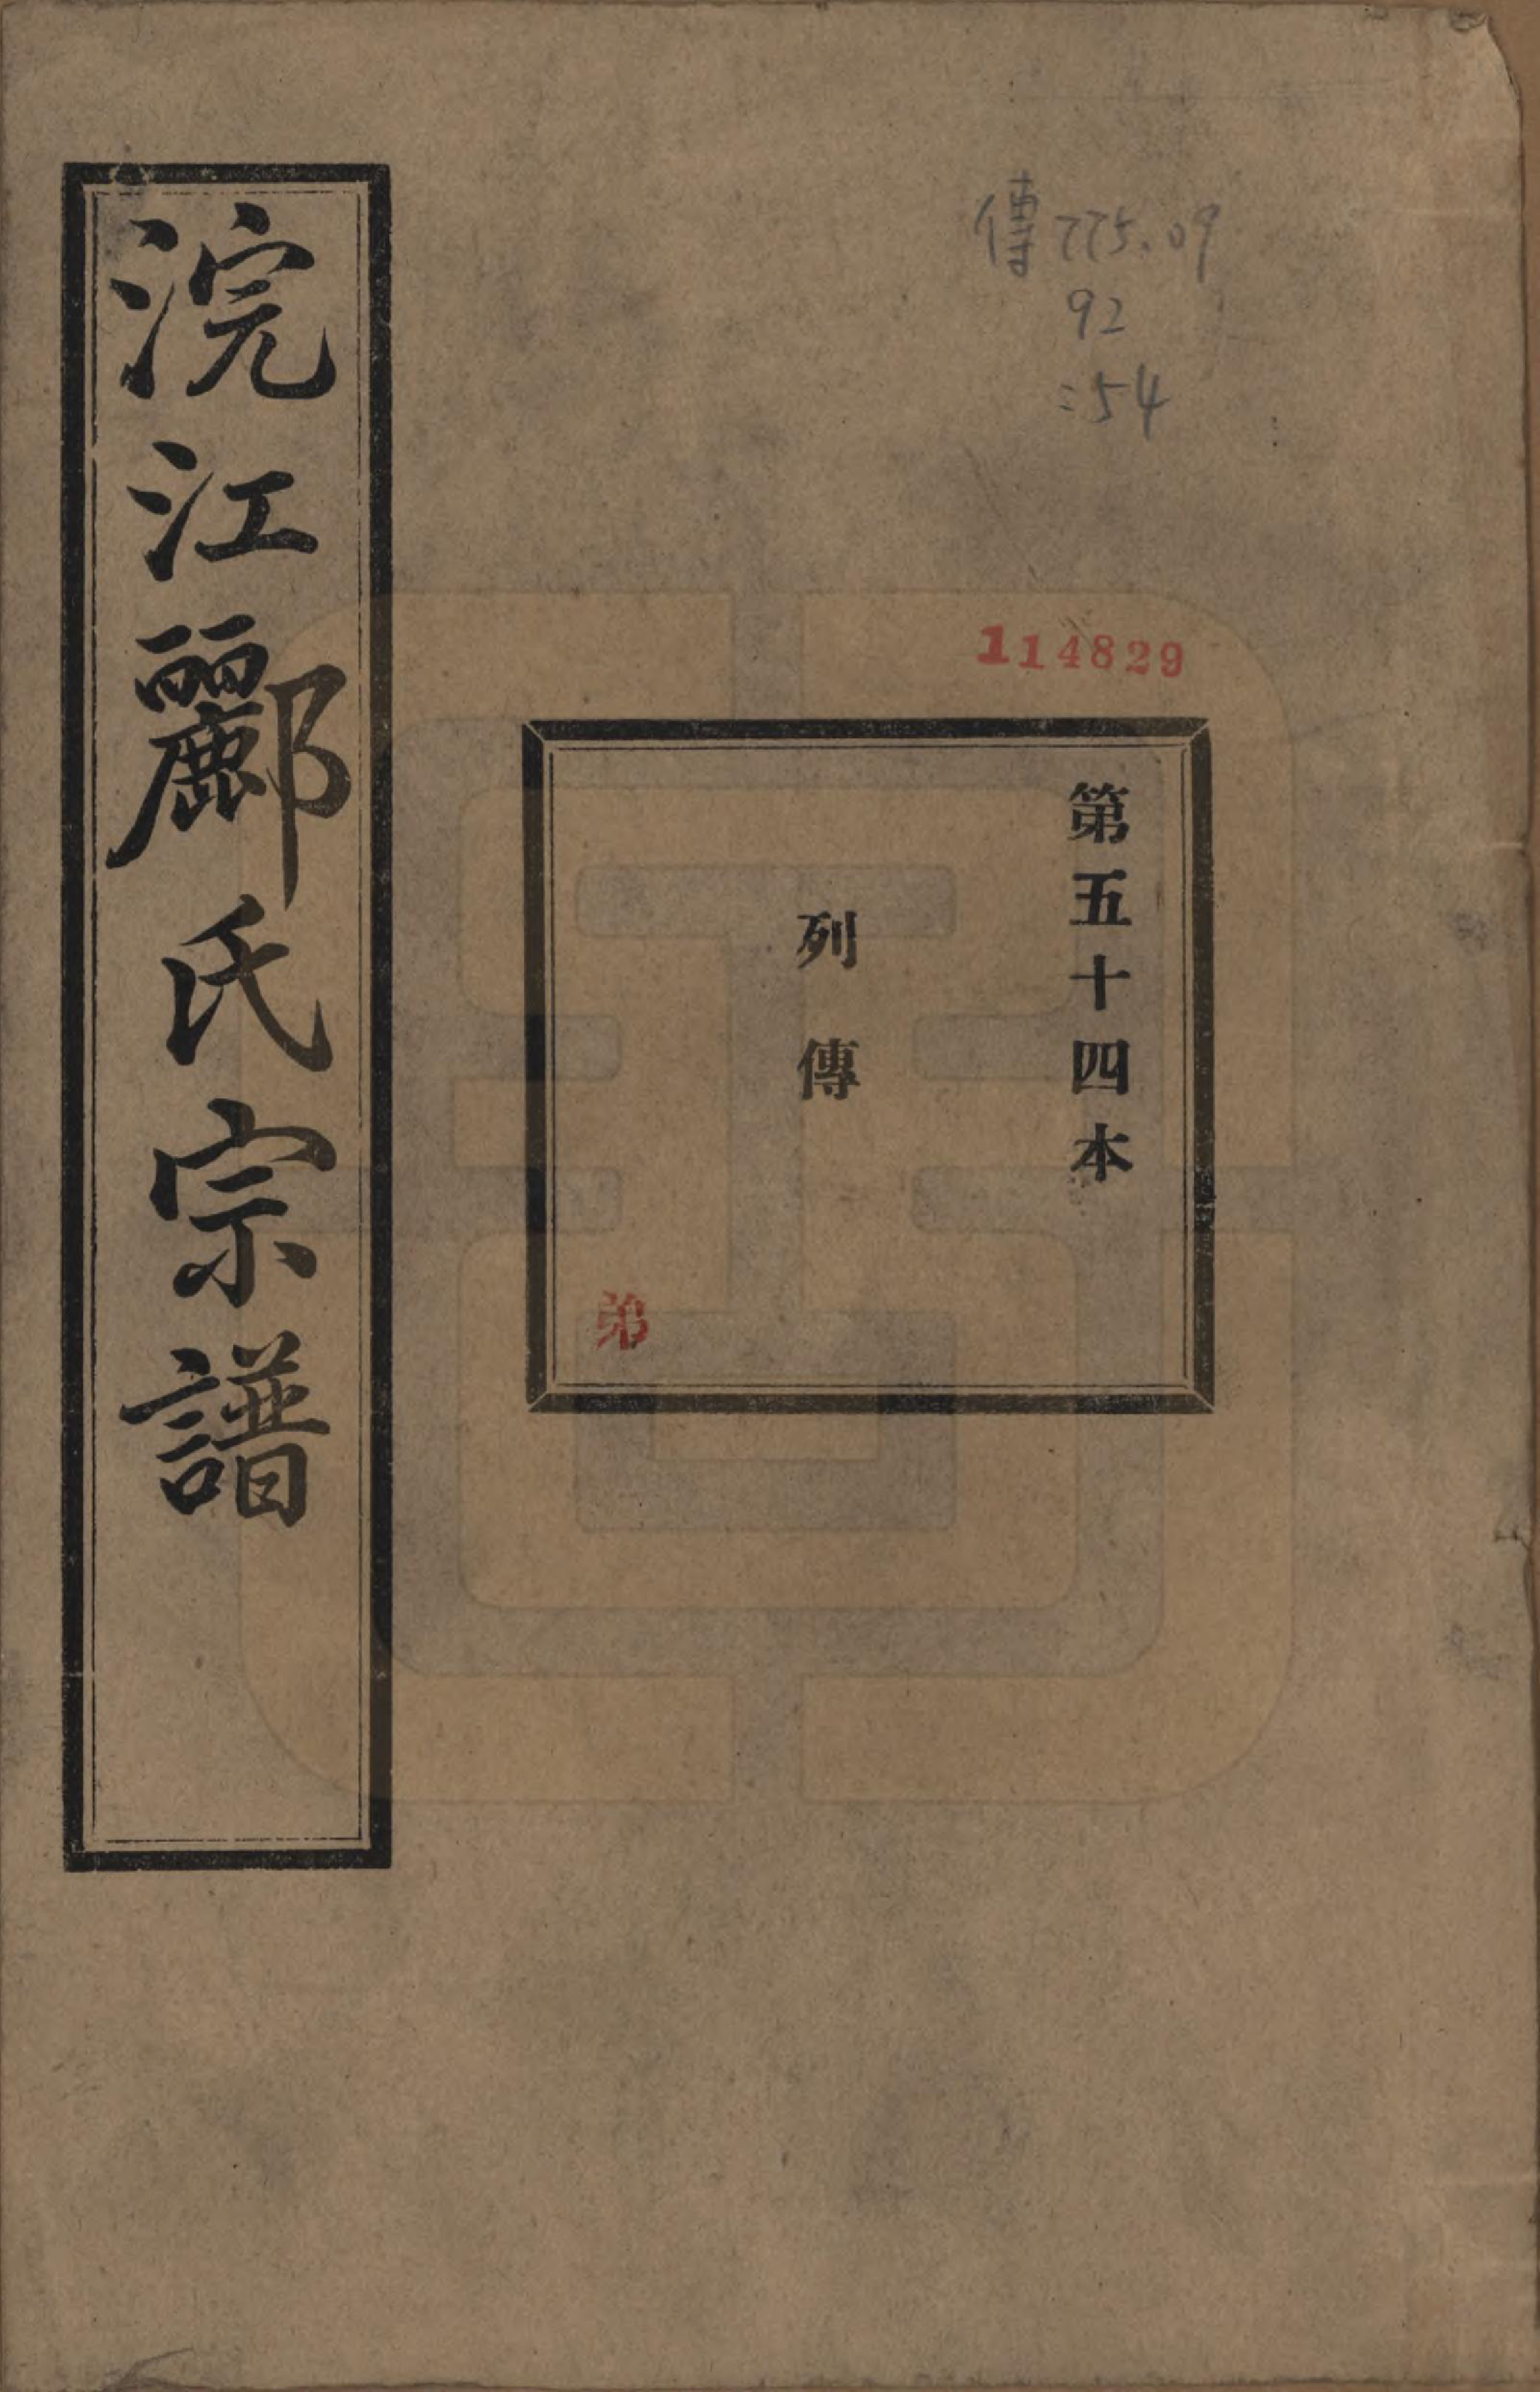 浣江酈氏宗譜
傳775.09
92
:54
114829
第五十四本
列傳
弟